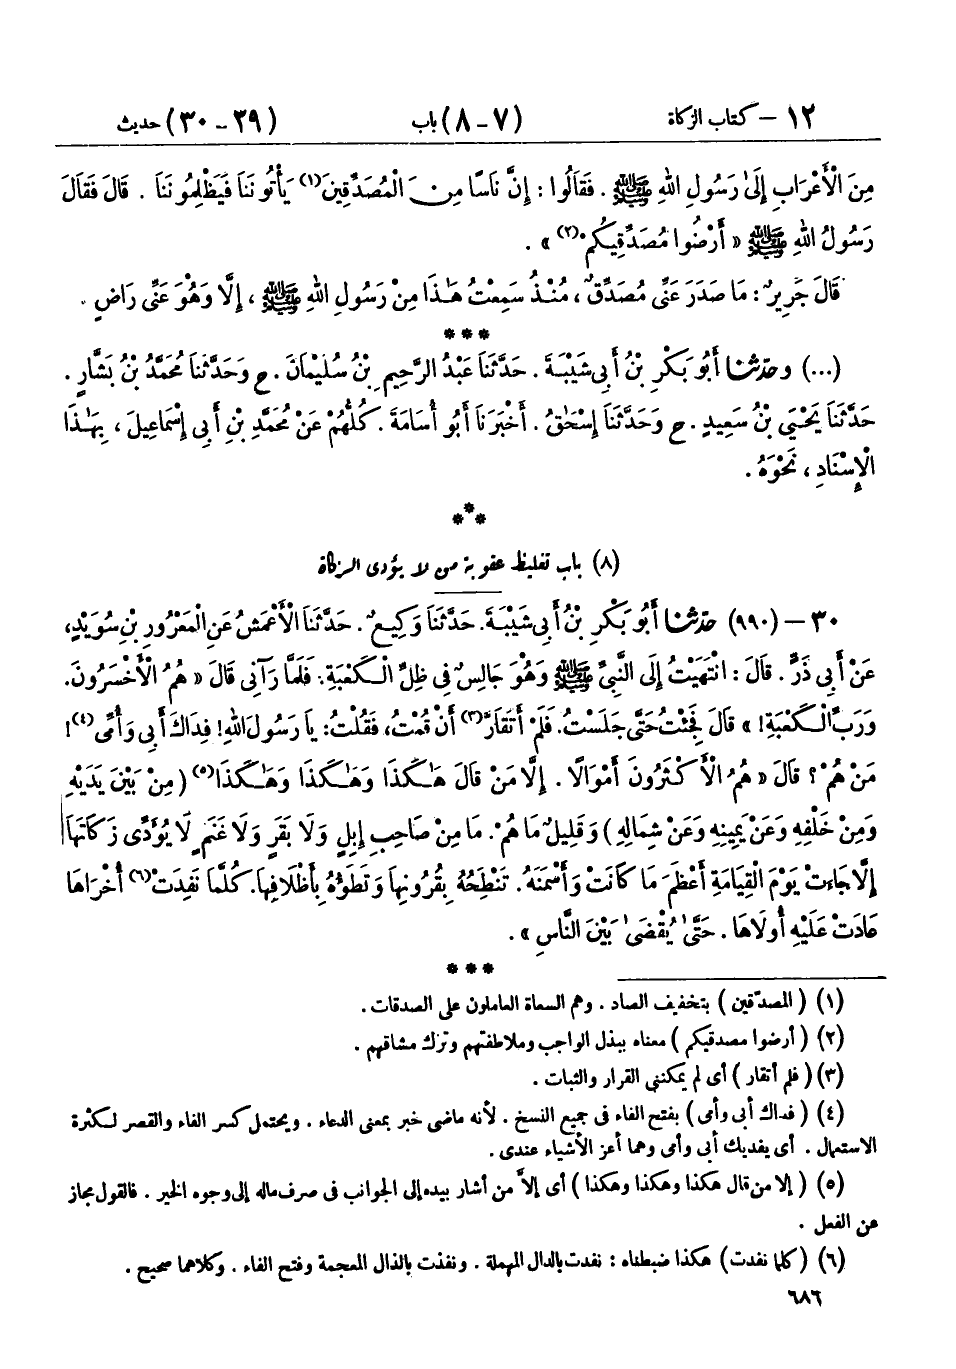 ١٢ – كتاب الزكاة (٧ – ٨) باب (٢٩ – ٣٠) حديث
مِنَ الْأَعْرَابِ إِلَىٰ رَسُولِ اللهِ ﷺ . فَقَالُوا : إِنَّ نَاسًا مِنَ الْمُصَدِّقِينَ(١) يَأْتُونَنَا فَيَظْلِمُونَنَا . قَالَ فَقَالَ
رَسُولُ اللهِ ﷺ « أَرْضُوا مُصَدِّقِيكُمْ(٢) » .
قَالَ جَرِيرٌ : مَا صَدَرَ عَنِّي مُصَدِّقٌ ، مُنْذُ سَمِعْتُ هَٰذَا مِنْ رَسُولِ اللهِ ﷺ ، إِلَّا وَهُوَ عَنِّي رَاضٍ .
***
(...) وحَدَّثَنَا أَبُو بَكْرِ بْنُ أَبِي شَيْبَةَ . حَدَّثَنَا عَبْدُ الرَّحِيمِ بْنُ سُلَيْمَانَ . ح وَحَدَّثَنَا مُحَمَّدُ بْنُ بَشَّارٍ .
حَدَّثَنَا يَحْيَىٰ بْنُ سَعِيدٍ . ح وَحَدَّثَنَا إِسْحَٰقُ . أَخْبَرَنَا أَبُو أُسَامَةَ . كُلُّهُمْ عَنْ مُحَمَّدِ بْنِ أَبِي إِسْمَاعِيلَ ، بِهَٰذَا
الْإِسْنَادِ ، نَحْوَهُ .
***
(٨) باب تغليظ عقوبة من لا يؤدى الزكاة
٣٠ – (٩٩٠) حَدَّثَنَا أَبُو بَكْرِ بْنُ أَبِي شَيْبَةَ. حَدَّثَنَا وَكِيعٌ . حَدَّثَنَا الْأَعْمَشُ عَنِ الْمَعْرُورِ بْنِ سُوَيْدٍ،
عَنْ أَبِي ذَرٍّ . قَالَ : انْتَهَيْتُ إِلَى النَّبِيِّ ﷺ وَهُوَ جَالِسٌ فِي ظِلِّ الْكَعْبَةِ. فَلَمَّا رَآنِي قَالَ « هُمُ الْأَخْسَرُونَ.
وَرَبِّ الْكَعْبَةِ! » قَالَ فَجِئْتُ حَتَّى جَلَسْتُ. فَلَمْ أَتَقَارَّ(٣) أَنْ قُمْتُ، فَقُلْتُ: يَا رَسُولَ اللهِ! فِدَاكَ أَبِي وَأُمِّي(٤)!
مَنْ هُمْ ؟ قَالَ « هُمُ الْأَكْثَرُونَ أَمْوَالًا . إِلَّا مَنْ قَالَ هَٰكَذَا وَهَٰكَذَا وَهَٰكَذَا(٥) ( مِنْ بَيْنِ يَدَيْهِ
وَمِنْ خَلْفِهِ وَعَنْ يَمِينِهِ وَعَنْ شِمَالِهِ ) وَقَلِيلٌ مَا هُمْ. مَا مِنْ صَاحِبِ إِبِلٍ وَلَا بَقَرٍ وَلَا غَنَمٍ لَا يُؤَدِّي زَكَاتَهَا
إِلَّا جَاءَتْ يَوْمَ الْقِيَامَةِ أَعْظَمَ مَا كَانَتْ وَأَسْمَنَهُ. تَنْطِحُهُ بِقُرُونِهَا وَتَطَؤُهُ بِأَظْلَافِهَا. كُلَّمَا نَفِدَتْ(٦) أُخْرَاهَا
عَادَتْ عَلَيْهِ أُولَاهَا . حَتَّىٰ يُقْضَىٰ بَيْنَ النَّاسِ » .
***
(١) ( المصدّقين ) بتخفيف الصاد . وهم السعاة العاملون على الصدقات .
(٢) ( أرضوا مصدقيكم ) معناه ببذل الواجب وملاطفتهم وترك مشاقهم .
(٣) ( فلم أتقار ) أى لم يمكنني القرار والثبات .
(٤) ( فداك أبى وأمى ) بفتح الفاء فى جميع النسخ . لأنه ماضى خبر بمعنى الدعاء . ويحتمل كسر الفاء والقصر لكثرة
الاستعمال . أى يفديك أبى وأمى وهما أعز الأشياء عندى .
(٥) ( إلا من قال هكذا وهكذا وهكذا ) أى إلاّ من أشار بيده إلى الجوانب فى صرف ماله إلى وجوه الخير . فالقول مجاز
عن الفعل .
(٦) ( كلما نفدت ) هكذا ضبطناه : نفدت بالدال المهملة . ونفذت بالذال المعجمة وفتح الفاء . وكلاهما صحيح .
٦٨٦